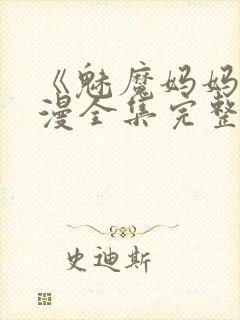 《魅魔妈妈
漫全集完整
史迪斯